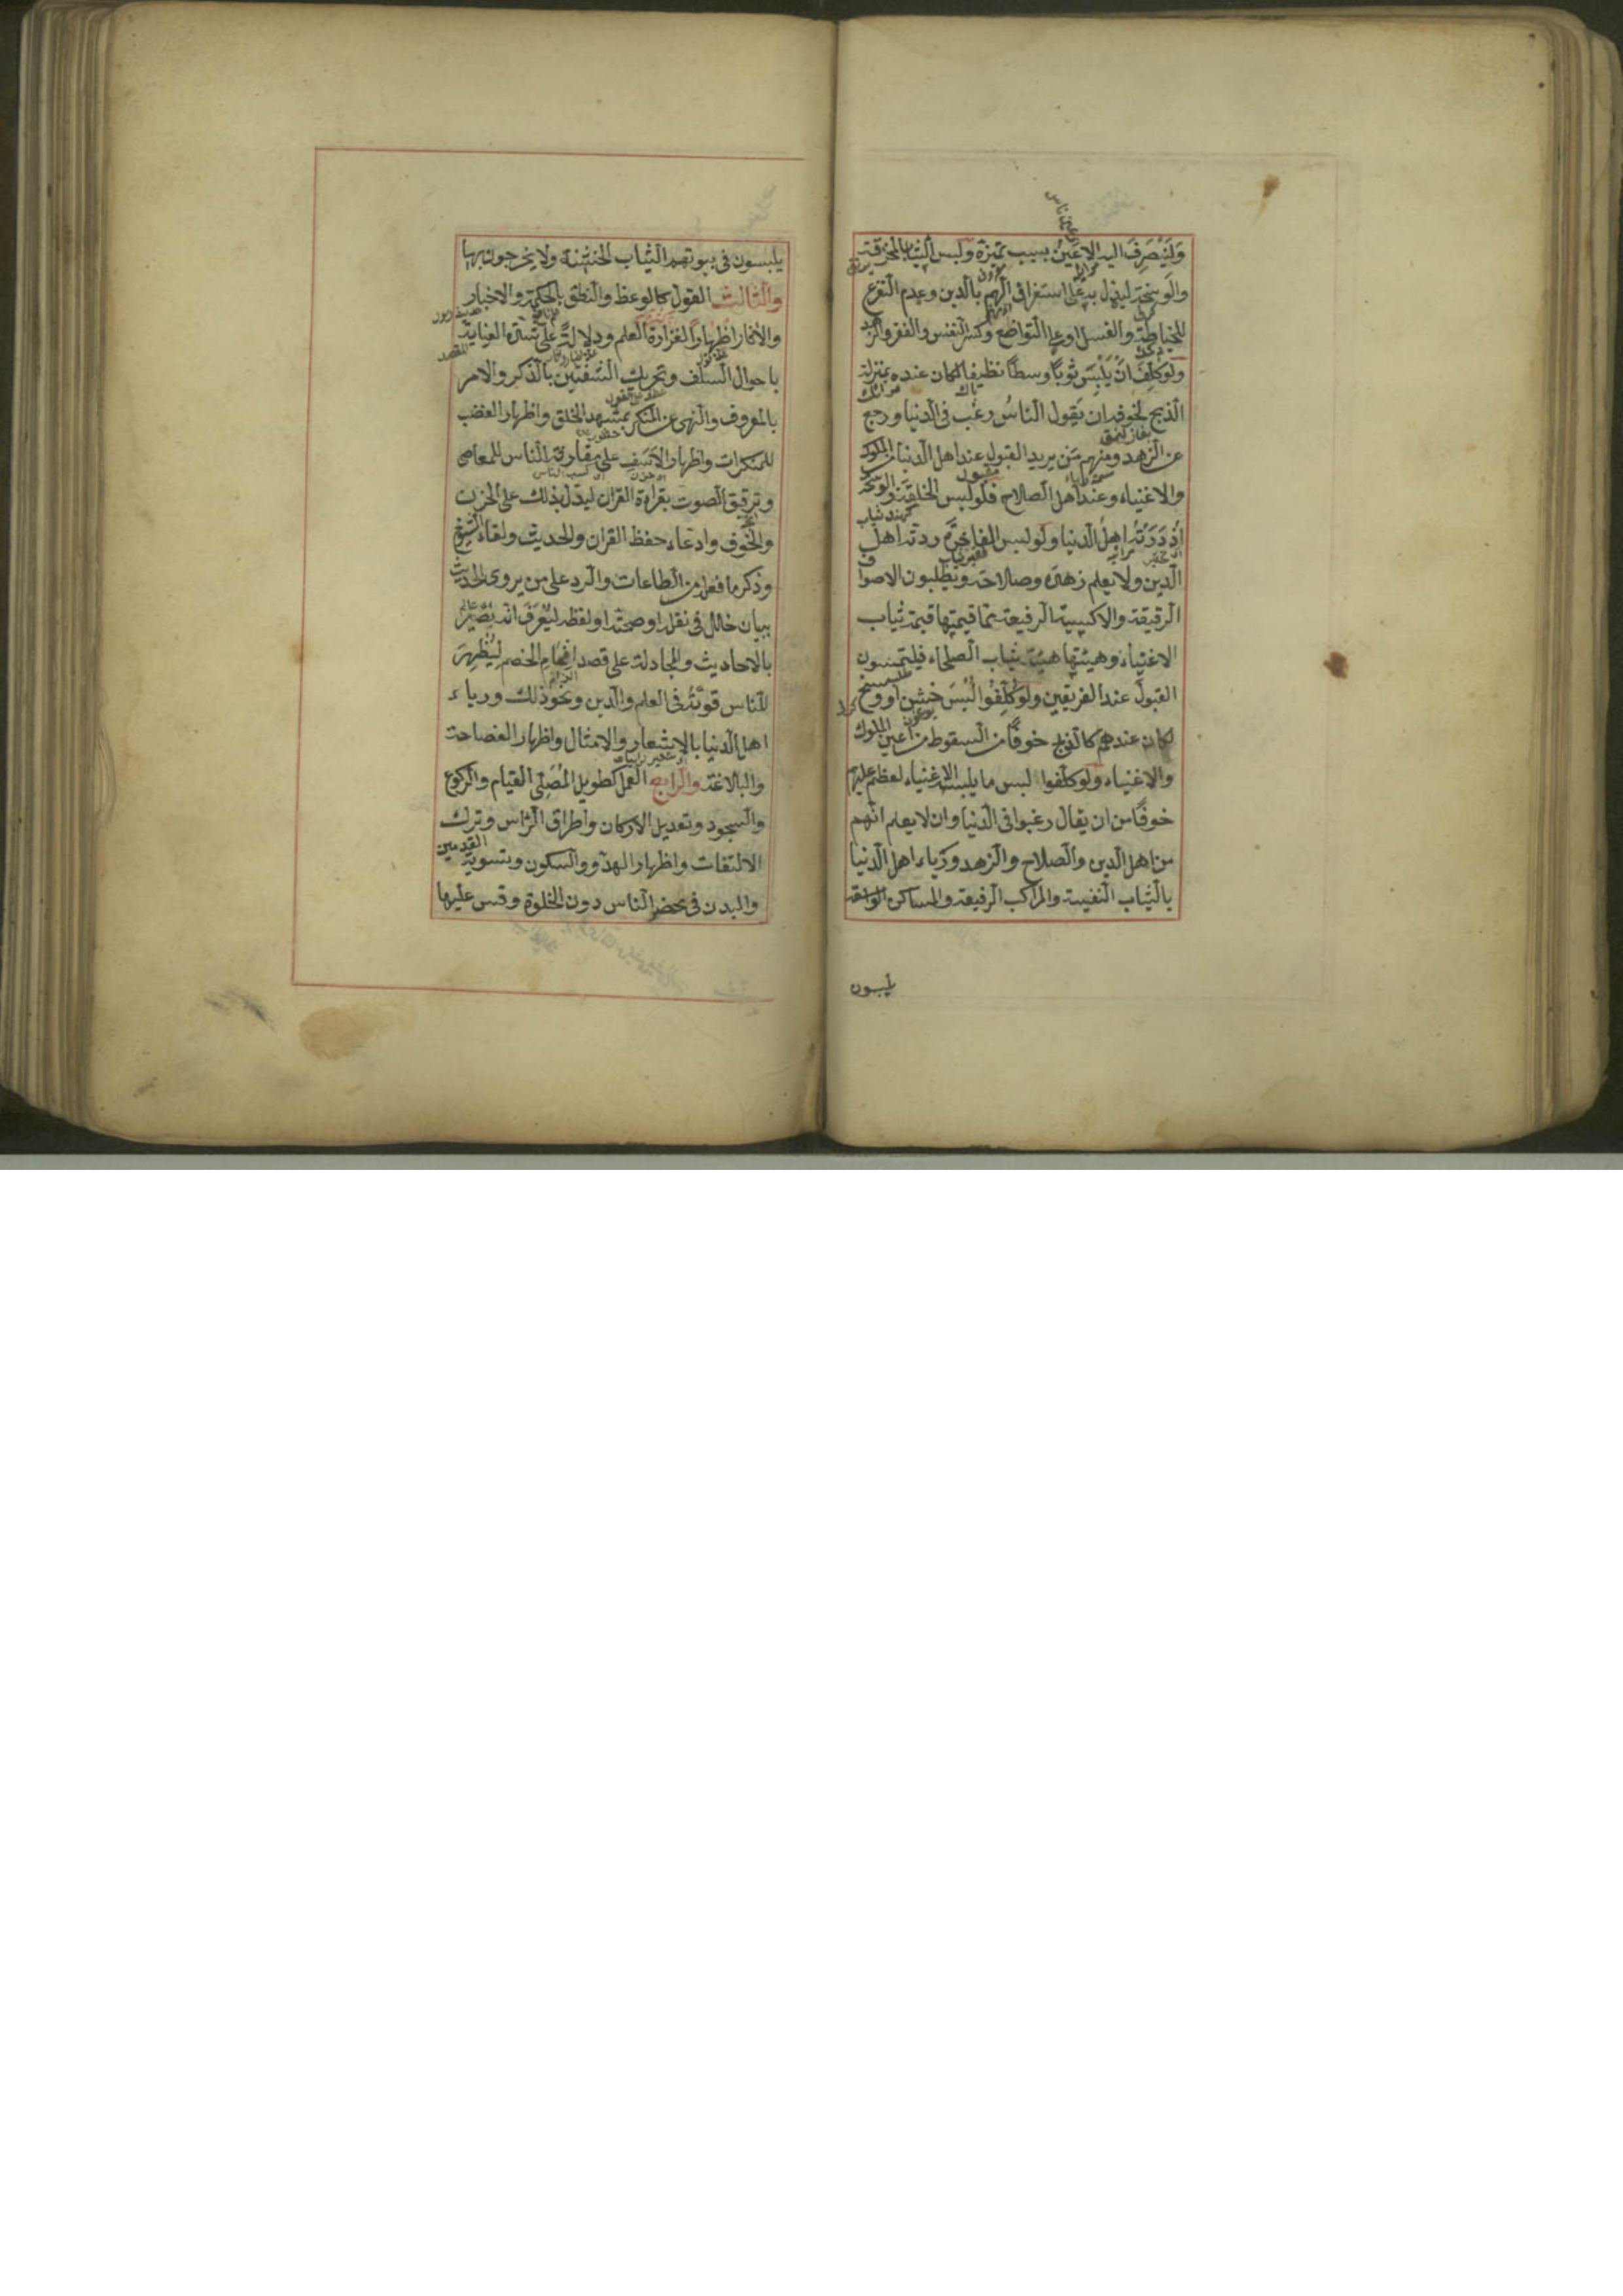 ولينصرف اليه الاعين بسبب تميزه ولبس الثياب المخرقة
والوسخة ليدل به على استغراق الهم بالدين وعدم التفرغ
للخياطة والغسل او على التواضع وكسر النفس والفقر والزهد
ولو كلف ان يلبس ثوبا وسطا نظيفا لكان عنده بمنزلة
الذبح لخوفه ان يقول الناس رغب في الدنيا ورجع
عن الزهد ومنهم من يريد القبول عند اهل الدنيا من الملوك
والاغنياء وعند اهل الصلاح فلو لبس الخلقة والوسخة
ازدرته اهل الدنيا ولو لبس الفاخرة ردته اهل
الدين ولا يعلم زهده وصلاحه ويطلبون الاصواف
الرقيقة والاكيسية الرفيعة مما قيمتها قيمة ثياب
الاغنياء وهيئتها هيئة ثياب الصلحاء فيلتمسون
القبول عند الفريقين ولو كلفوا لبس خشن او وسخ
لكان عندهم كالذبح خوفا من السقوط من اعين الملوك
والاغنياء ولو كلفوا لبس ما يلبسه الاغنياء لعظم عليهم
خوفا من ان يقال رغبوا في الدنيا وان لا يعلم انهم
من اهل الدين والصلاح والزهد ورياء اهل الدنيا
بالثياب النفيسة والمراكب الرفيعة والمساكن الواسعة
يلبسون
يلبسون في بيوتهم الثياب الخشنة ولا يخرجون بها
والثالث القول كالوعظ والنطق بالحكمة والاخبار
والآثار اظهارا لغزارة العلم ودلالة على شدة العناية
باحوال السلف وتحريك الشفتين بالذكر والامر
بالمعروف والنهي عن المنكر بمشهد الخلق واظهار الغضب
للمنكرات واظهار الاسف على مقارفة الناس للمعاصي
وترقيق الصوت بقراءة القرآن ليدل بذلك على الحزن
والخوف وادعاء حفظ القرآن والحديث ولقاء الشيوخ
وذكر ما فعله من الطاعات والرد على من يروي الحديث
ببيان خلل في نقله او صحته او لفظه ليعرف انه بصير
بالاحاديث والمجادلة على قصد افحام الخصم ليظهر
للناس قوته في العلم والدين ونحو ذلك ورياء
اهل الدنيا بالاشعار والامثال واظهار الفصاحة
والبلاغة والرابع العمل كطويل المصلي القيام والركوع
والسجود وتعديل الاركان واطراق الراس وترك
الالتفات واظهار الهدو والسكون وتسوية القدمين
واليدين في محضر الناس دون الخلوة وقس عليها